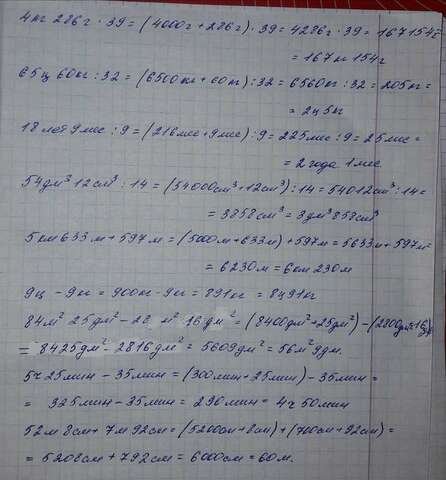 4 кг 286 г · 39 = (4000 г + 286 г) · 39 = 4286 г · 39 = 167154 г
= 167 кг 154 г
65 ц 60 кг : 32 = (6500 кг + 60 кг) : 32 = 6560 кг : 32 = 205 кг =
= 2 ц 5 кг
18 лет 9 мес : 9 = (216 мес + 9 мес) : 9 = 225 мес : 9 = 25 мес =
= 2 года 1 мес
54 дм³ 12 см³ : 14 = (54000 см³ + 12 см³) : 14 = 54012 см³ : 14 =
= 3858 см³ = 3 дм³ 858 см³
5 км 633 м + 597 м = (5000 м + 633 м) + 597 м = 5633 м + 597 м =
= 6230 м = 6 км 230 м
9 ц - 9 кг = 900 кг - 9 кг = 891 кг = 8 ц 91 кг
84 м² 25 дм² - 28 м² 16 дм² = (8400 дм² + 25 дм²) - (2800 дм² + 16 дм²)
= 8425 дм² - 2816 дм² = 5609 дм² = 56 м² 9 дм.
5 ч 25 мин - 35 мин = (300 мин + 25 мин) - 35 мин =
= 325 мин - 35 мин = 290 мин = 4 ч 50 мин
52 м 8 см + 7 м 92 см = (5200 см + 8 см) + (700 см + 92 см) =
= 5208 см + 792 см = 6000 см = 60 м.